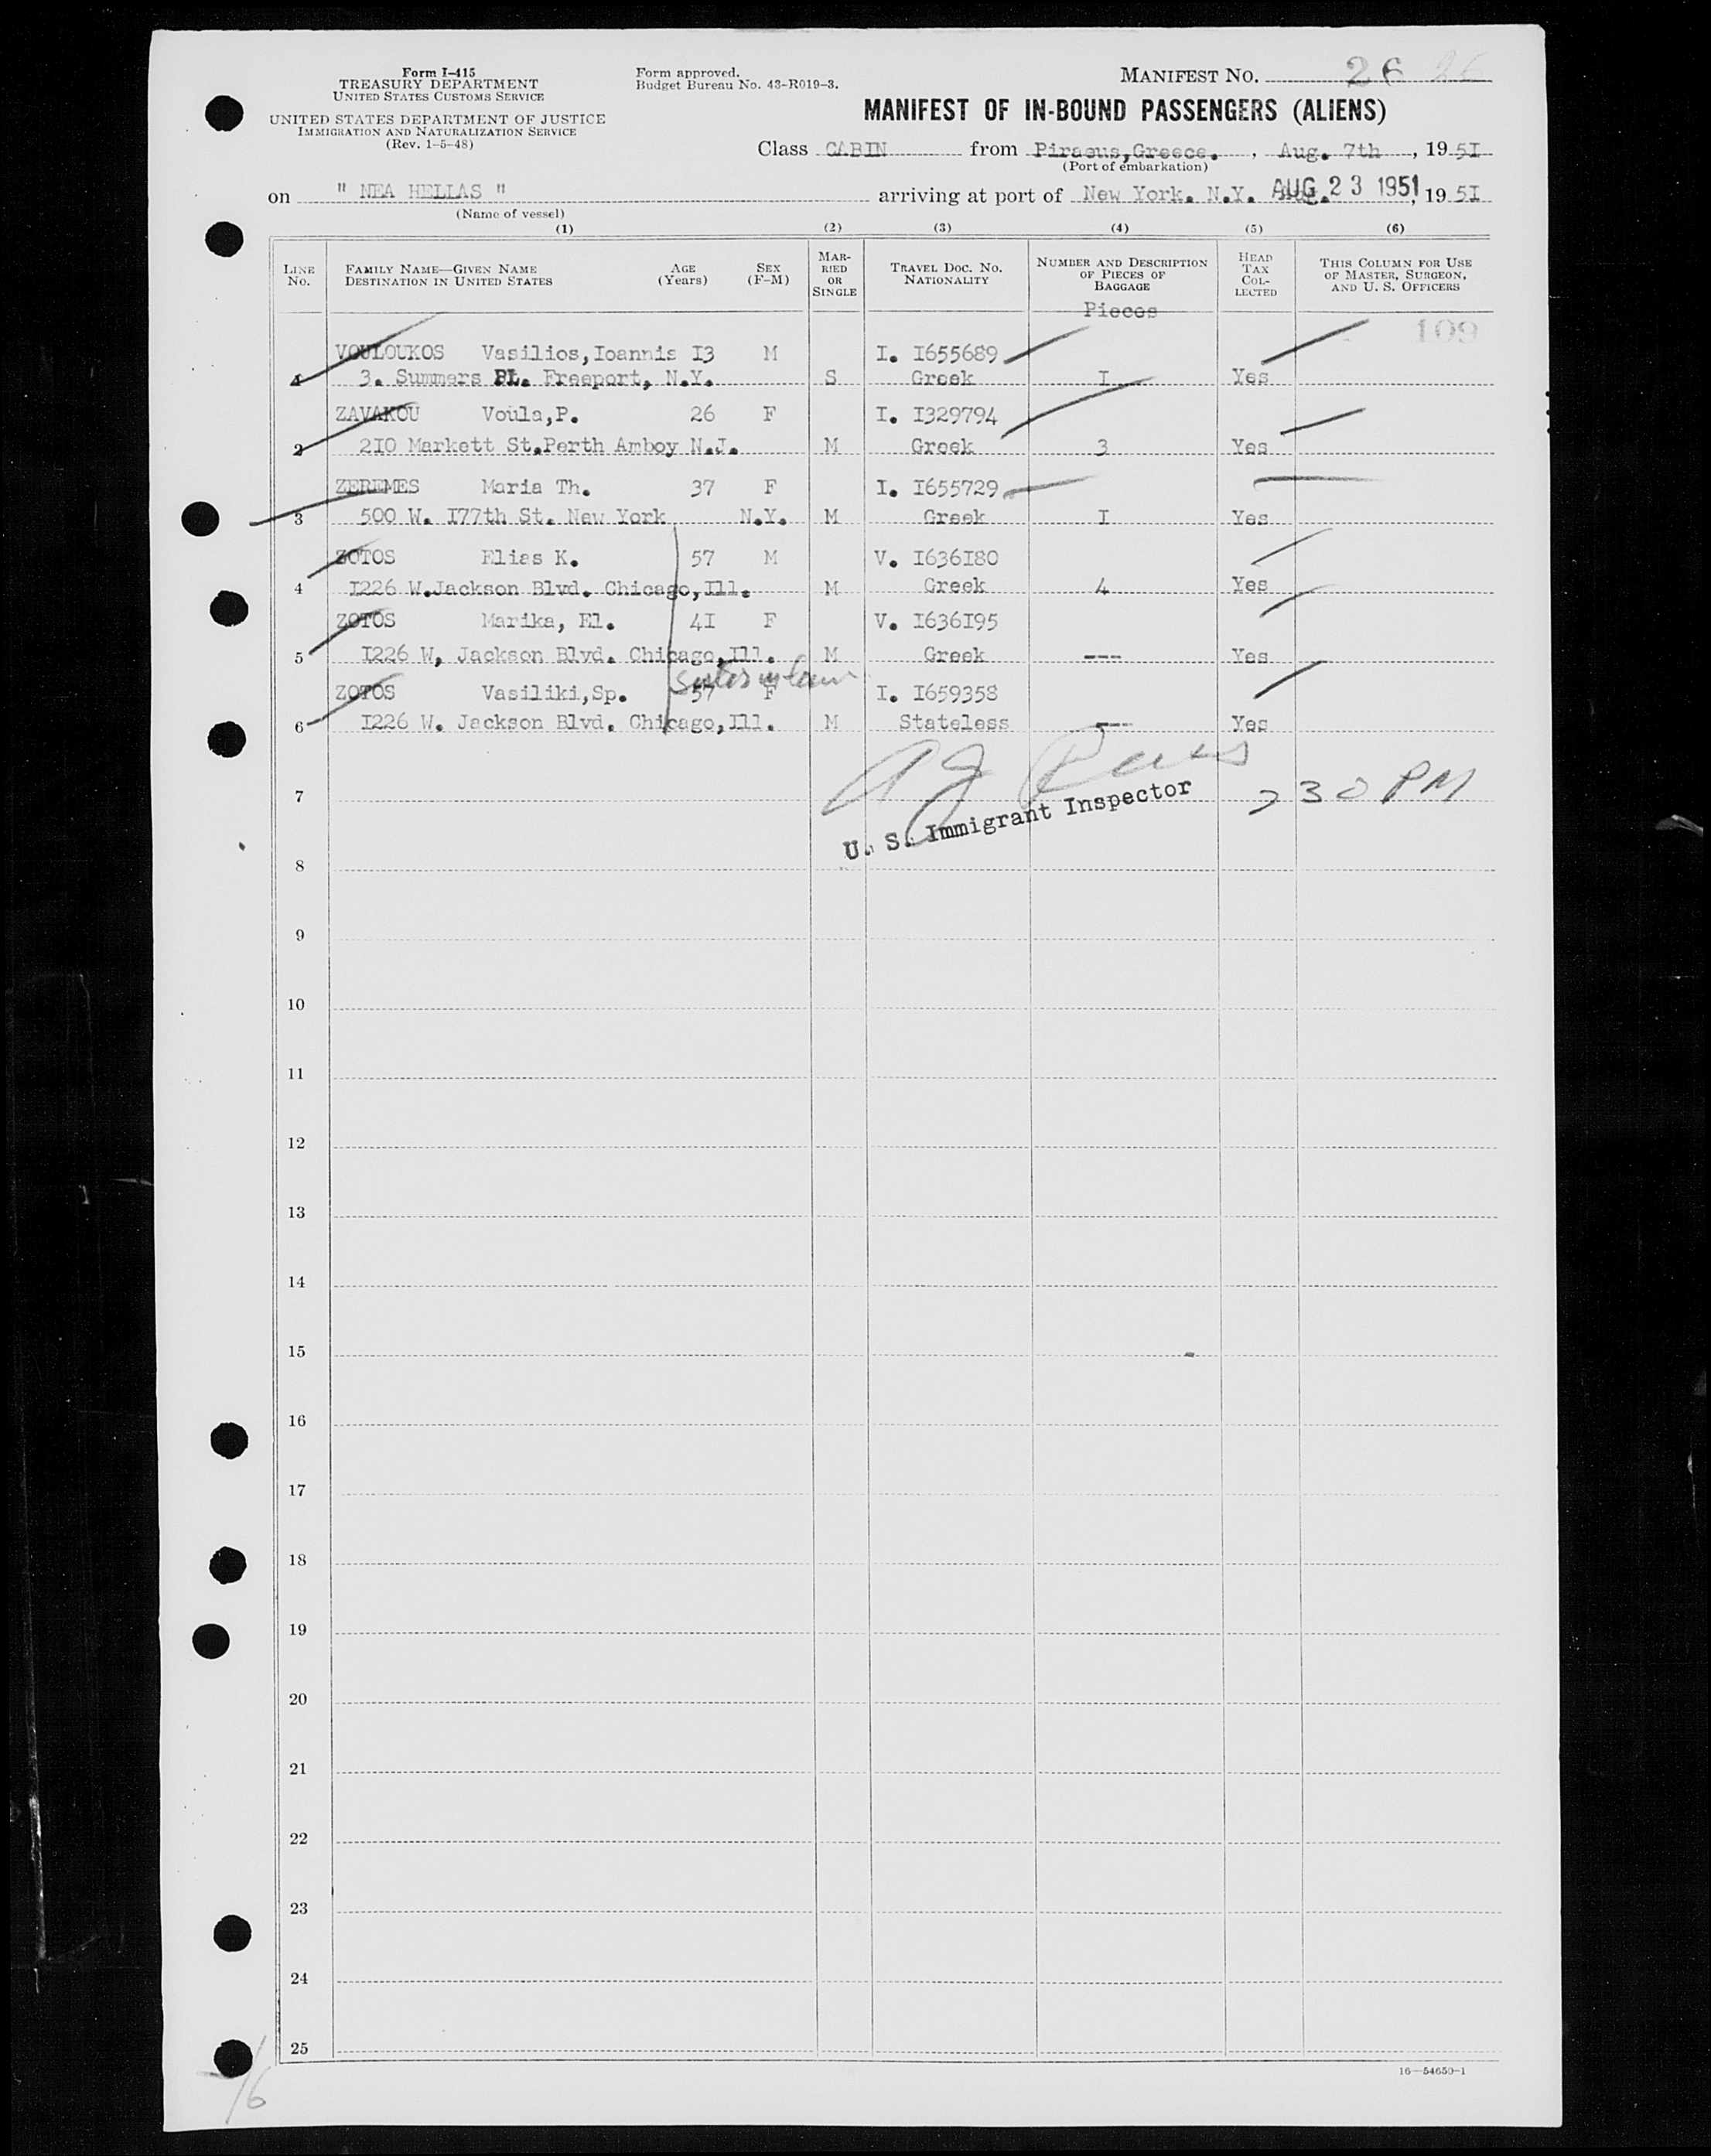 Form I-415
TREASURY DEPARTMENT
UNITED STATES CUSTOMS SERVICE
UNITED STATES DEPARTMENT OF JUSTICE
IMMIGRATION AND NATURALIZATION SERVICE
(Rev. 1-5-48)
Form approved.
Budget Bureau No. 43-R019-3.
MANIFEST NO. 26 26
MANIFEST OF IN-BOUND PASSENGERS (ALIENS)
Class CABIN from Piraeus,Greece. , Aug. 7th , 19 5I
(Port of embarkation)
on " NEA HELLAS " arriving at port of New York. N.Y. AUG 23 1951, 19 5I
(Name of vessel)
(1) (2) (3) (4) (5) (6)
LINE No. FAMILY NAME—GIVEN NAME DESTINATION IN UNITED STATES AGE (Years) SEX (F-M) MARRIED OR SINGLE TRAVEL DOC. NO. NATIONALITY NUMBER AND DESCRIPTION OF PIECES OF BAGGAGE HEAD TAX COLLECTED THIS COLUMN FOR USE OF MASTER, SURGEON, AND U. S. OFFICERS
Pieces
109
VOULOUKOS Vasilios,Ioannis I3 M I. I655689
1 3. Summers PL. Freeport, N.Y. S Greek I Yes
ZAVAKOU Voula,P. 26 F I. I329794
2 2I0 Markett St.Perth Amboy N.J. M Greek 3 Yes
ZEREMES Maria Th. 37 F I. I655729
3 500 W. I77th St. New York N.Y. M Greek I Yes
ZOTOS Elias K. 57 M V. I636I80
4 I226 W.Jackson Blvd. Chicago,Ill. M Greek 4 Yes
ZOTOS Marika, El. 4I F V. I636I95
5 I226 W, Jackson Blvd. Chicago,Ill. M Greek --- Yes
sister in law
ZOTOS Vasiliki,Sp. 57 F I. I659358
6 I226 W. Jackson Blvd. Chicago,Ill. M Stateless --- Yes
7 30 PM
U. S. Immigrant Inspector
7
8
9
10
11
12
13
14
15
16
17
18
19
20
21
22
23
24
25
16—54650-1